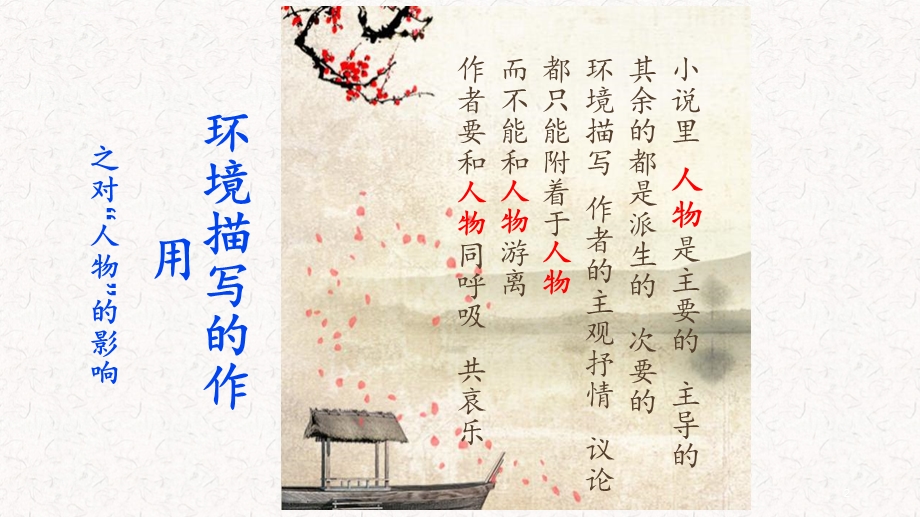 小说里 人物是主要的 主导的
其余的都是派生的 次要的
环境描写 作者的主观抒情 议论
都只能附着于人物
而不能和人物游离
作者要和人物同呼吸 共哀乐
环境描写的作
用
之对“人物”的影响